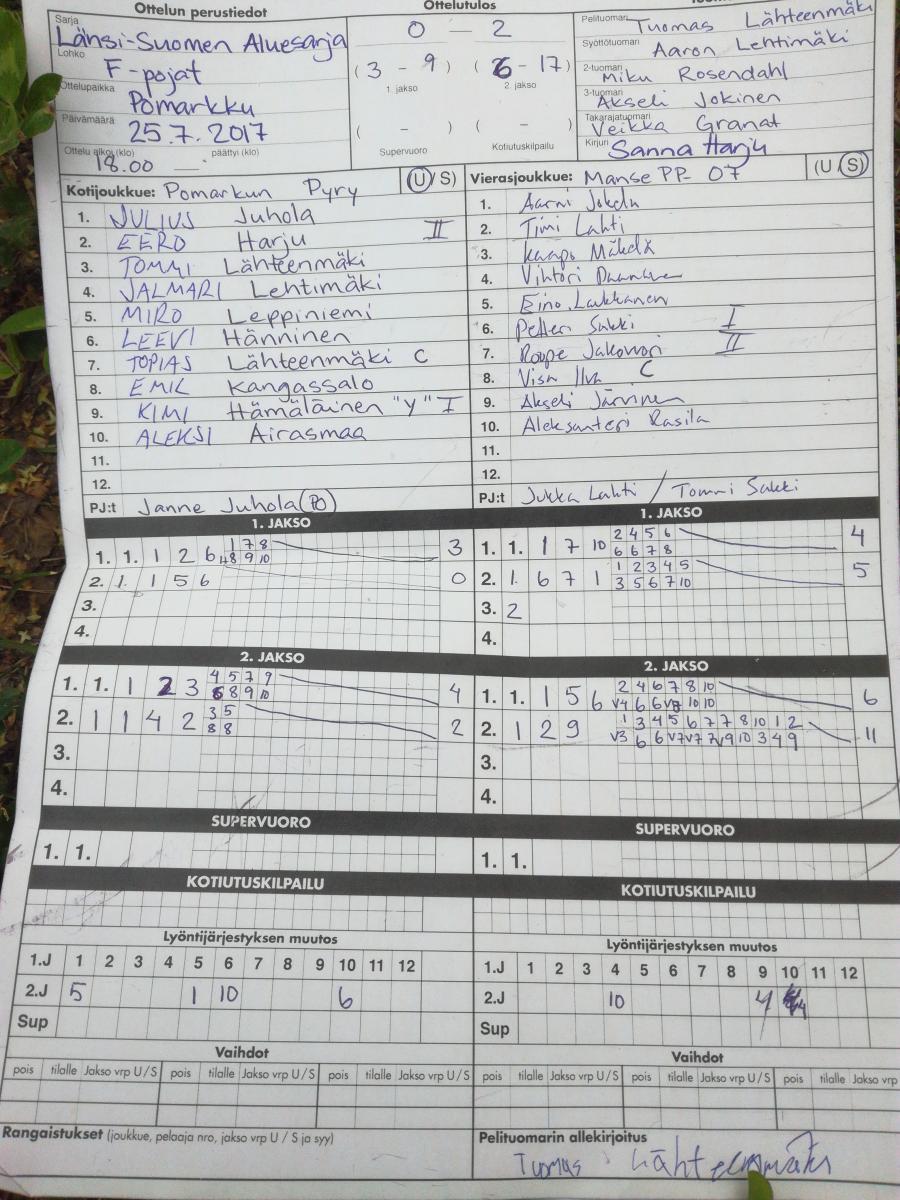 Ottelun perustiedot
Sarja
Länsi-Suomen Aluesarja
Lohko
F-pojat
Ottelupaikka
Pomarkku
Päivämäärä
25.7.2017
Ottelu alkoi (klo) päättyi (klo)
18.00
Ottelutulos
0 - 2
(3 - 9) (6 - 17)
1. jakso 2. jakso
( - ) ( - )
Supervuoro Kotiutuskilpailu
Pelituomari Tuomas Lähteenmäki
Syöttötuomari Aaron Lehtimäki
2-tuomari Miku Rosendahl
3-tuomari Akseli Jokinen
Takarajatuomari Veikka Granat
Kirjuri Sanna Harju
Kotijoukkue: Pomarkun Pyry (U/S)
1. JULIUS Juhola
2. EERO Harju II
3. TOMMI Lähteenmäki
4. JALMARI Lehtimäki
5. MIRO Leppiniemi
6. LEEVI Hänninen
7. TOPIAS Lähteenmäki C
8. EMIL Kangassalo
9. KIMI Hämäläinen "Y" I
10. ALEKSI Airasmaa
11.
12.
PJ:t Janne Juhola (PO)
Vierasjoukkue: Manse PP- 07 (U/S)
1. Aarni Jokela
2. Timi Lahti
3. Kaapo Mäkelä
4. Vihtori
5. Eino Laukkanen
6. Petteri Sakki I
7. Roope II
8. Visa C
9. Akseli Järvinen
10. Aleksanteri Rasila
11.
12.
PJ:t Jukka Lahti / Tommi Sakki
1. JAKSO
1. 1. 1 2 6 1 7 8 3
8 9 10
2. 1. 1 5 6 0
3.
4.
1. JAKSO
1. 1. 1 7 10 2 4 5 6 4
6 6 7 8
2. 1. 6 7 1 1 2 3 4 5 5
3 5 6 7 10
3. 2
4.
2. JAKSO
1. 1. 1 2 3 4 5 7 9 4
6 8 9 10
2. 1 1 4 2 3 5 2
8 8
3.
4.
2. JAKSO
1. 1. 1 5 6 2 4 6 7 8 10 6
V4 6 6 V7 10 10
2. 1 2 9 1 3 4 5 6 7 7 8 10 1 2 11
V3 6 6 V7 V7 7 V9 10 3 4 9
3.
4.
SUPERVUORO
1. 1.
SUPERVUORO
1. 1.
KOTIUTUSKILPAILU
KOTIUTUSKILPAILU
Lyöntijärjestyksen muutos
1.J 1 2 3 4 5 6 7 8 9 10 11 12
2.J 5 1 10 6
Sup
Lyöntijärjestyksen muutos
1.J 1 2 3 4 5 6 7 8 9 10 11 12
2.J 10 4
Sup
Vaihdot
pois tilalle Jakso vrp U/S pois tilalle Jakso vrp U/S pois tilalle Jakso vrp U/S
Vaihdot
pois tilalle Jakso vrp U/S pois tilalle Jakso vrp U/S pois tilalle Jakso vrp
Rangaistukset (joukkue, pelaaja nro, jakso vrp U / S ja syy)
Pelituomarin allekirjoitus
Tuomas Lähteenmäki